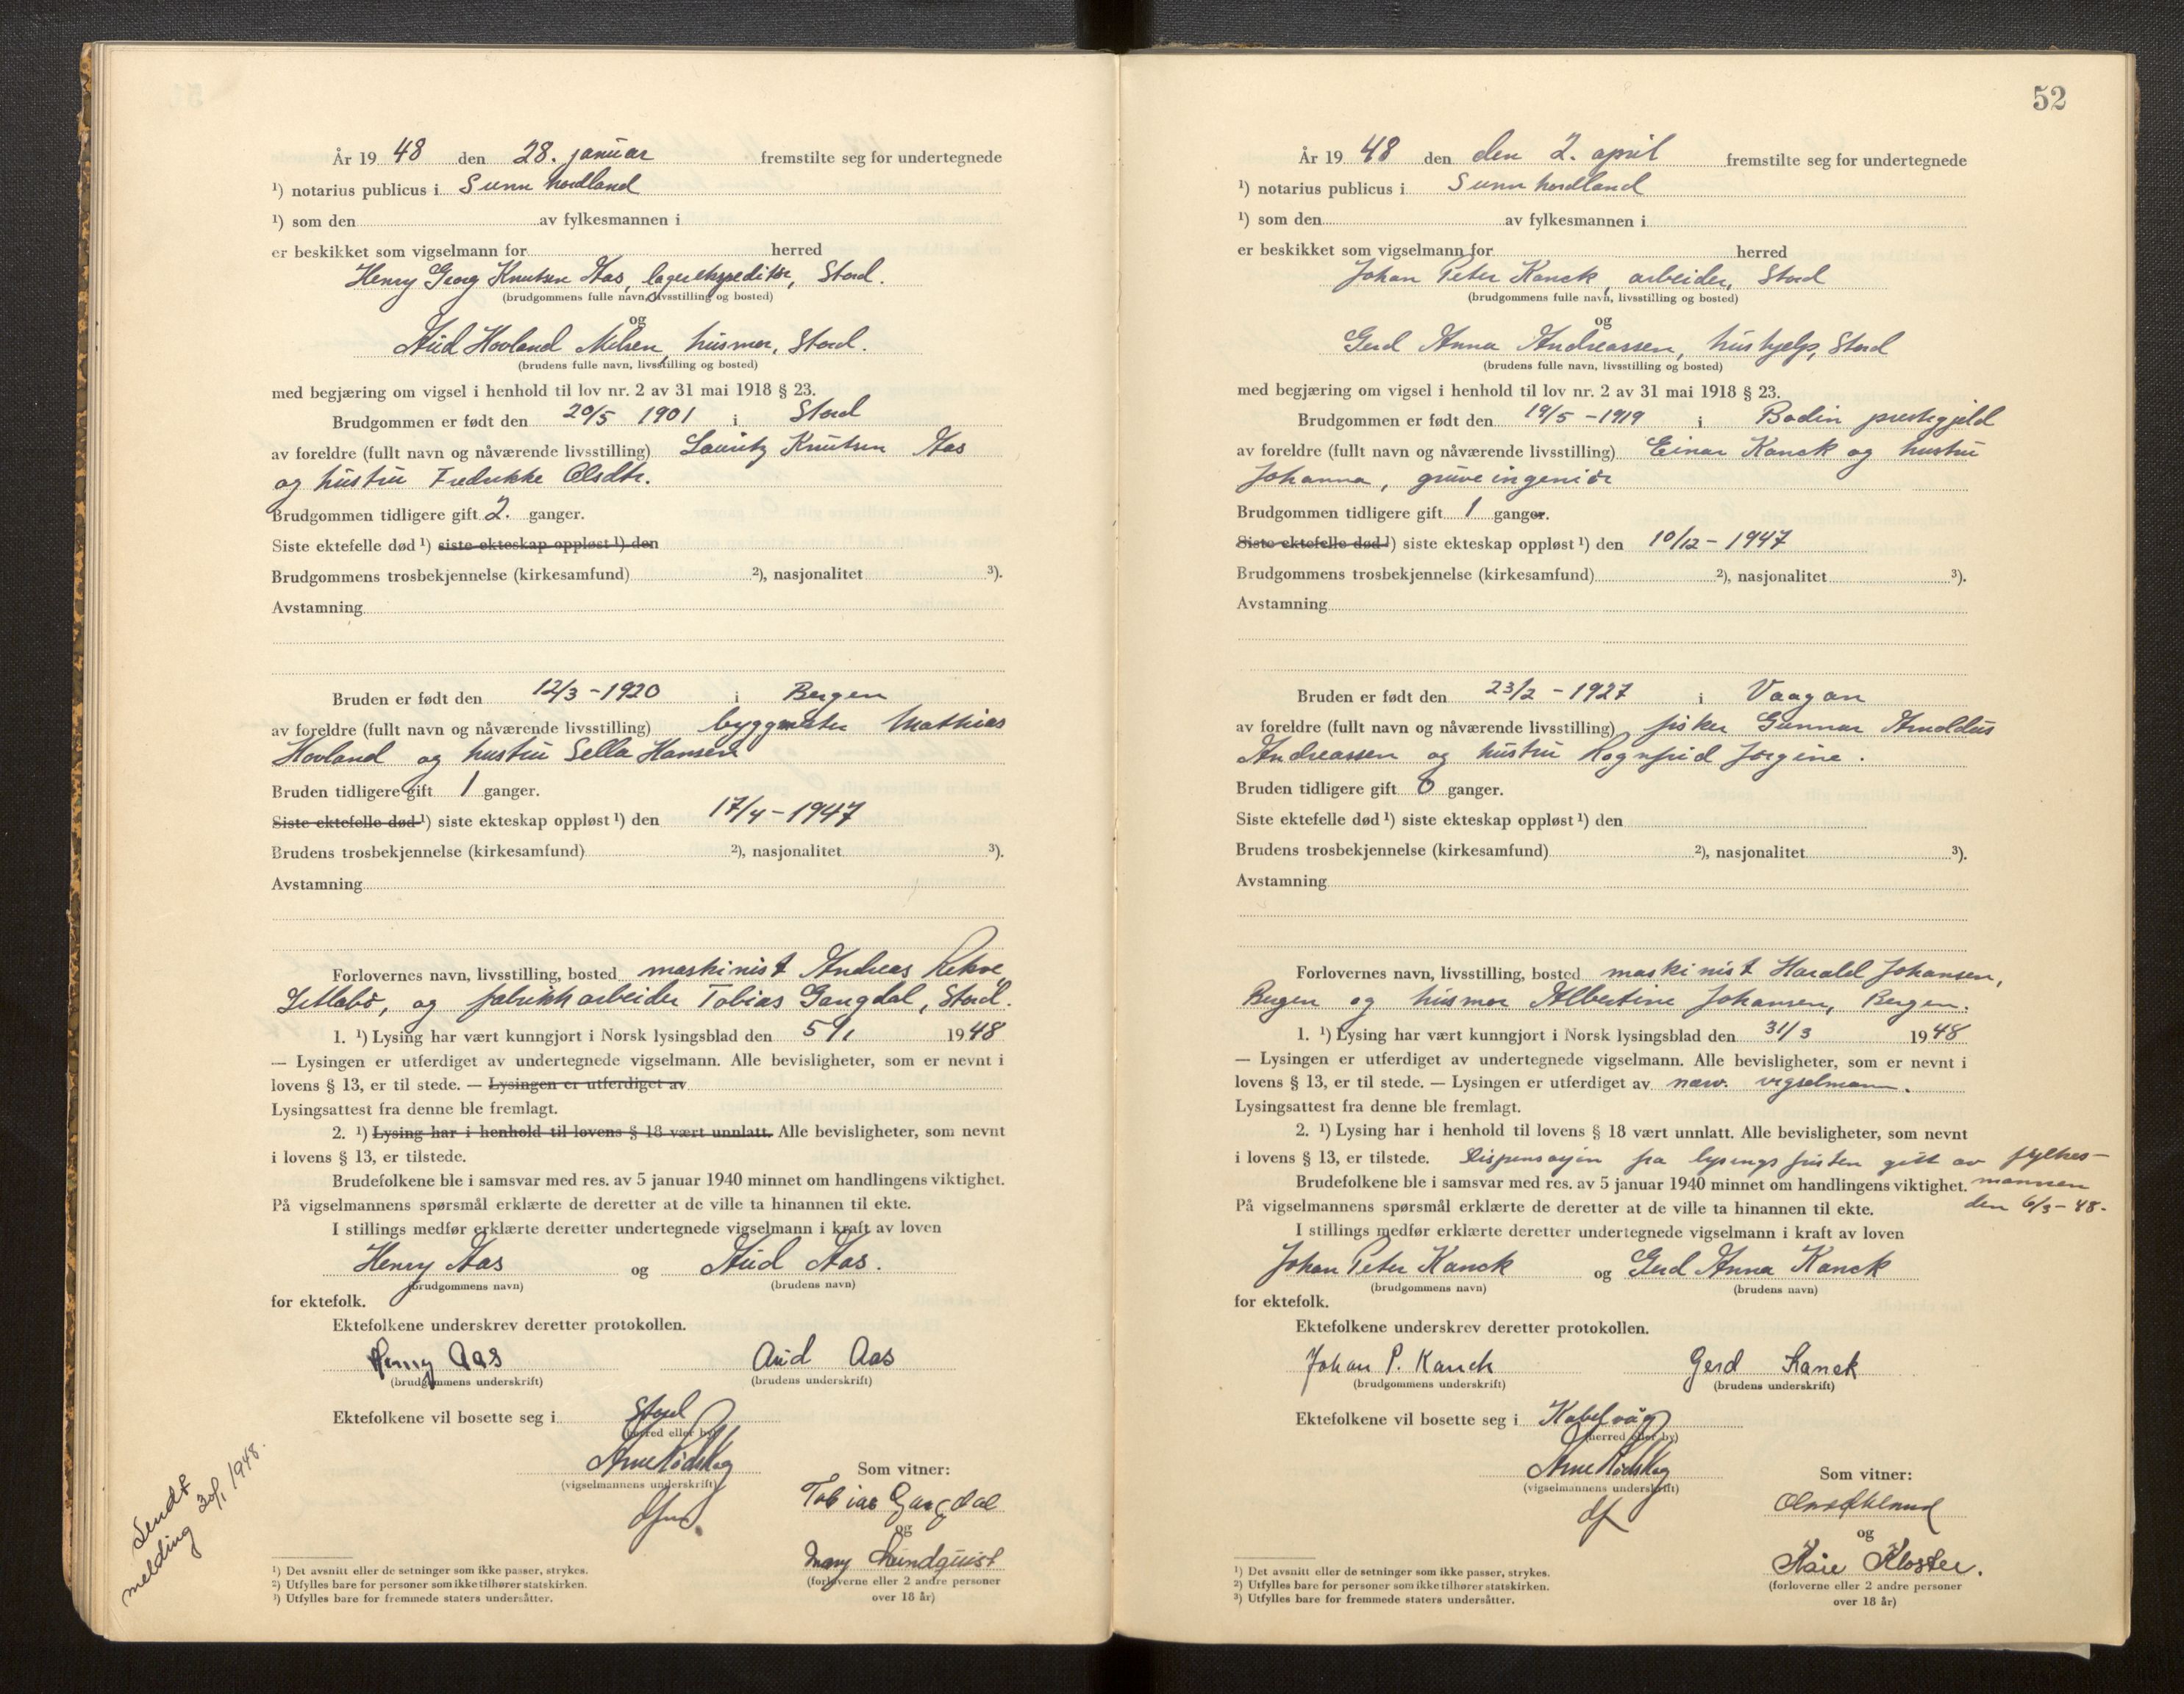 År 1948 den 28. januar fremstilte seg for undertegnede
¹) notarius publicus i Sunnhordland
¹) som den av fylkesmannen i
er beskikket som vigselmann for herred
Henry Georg Knutsen Aas, lagerekspeditør, Stord.
(brudgommens fulle navn, livsstilling og bosted)
og
Aud Hovland Nilsen, husmor, Stord.
(brudens fulle navn, livsstilling og bosted)
med begjæring om vigsel i henhold til lov nr. 2 av 31 mai 1918 § 23.
Brudgommen er født den 20/5 1901 i Stord
av foreldre (fullt navn og nåværende livsstilling) Lauritz Knutsen Aas
og hustru Fredrikke Olsdtr.
Brudgommen tidligere gift 2. ganger.
Siste ektefelle død ¹) siste ekteskap oppløst ¹) den
Brudgommens trosbekjennelse (kirkesamfund) ²), nasjonalitet ³).
Avstamning
Bruden er født den 12/3 - 1920 i Bergen
av foreldre (fullt navn og nåværende livsstilling) byggmester Mathias
Hovland og hustru Sella Hansen
Bruden tidligere gift 1 ganger.
Siste ektefelle død ¹) siste ekteskap oppløst ¹) den 17/4 - 1947
Brudens trosbekjennelse (kirkesamfund) ²), nasjonalitet ³).
Avstamning
Forlovernes navn, livsstilling, bosted maskinist Andreas Rekve
, og fabrikkarbeider Tobias Gangdal, Stord.
1. ¹) Lysing har vært kunngjort i Norsk lysingsblad den 5/1 1948
— Lysingen er utferdiget av undertegnede vigselmann. Alle bevisligheter, som er nevnt i
lovens § 13, er til stede. — Lysingen er utferdiget av
Lysingsattest fra denne ble fremlagt.
2. ¹) Lysing har i henhold til lovens § 18 vært unnlatt. Alle bevisligheter, som nevnt
i lovens § 13, er tilstede.
Brudefolkene ble i samsvar med res. av 5 januar 1940 minnet om handlingens viktighet.
På vigselmannens spørsmål erklærte de deretter at de ville ta hinannen til ekte.
I stillings medfør erklærte deretter undertegnede vigselmann i kraft av loven
Henry Aas og Aud Aas.
(brudgommens navn) (brudens navn)
for ektefolk.
Ektefolkene underskrev deretter protokollen.
Henry Aas Aud Aas
(brudgommens underskrift) (brudens underskrift)
Ektefolkene vil bosette seg i Stord
(herred eller by)
Arne Rødskog
(vigselmannens underskrift)
Som vitner:
Tobias Gangdal
og
Mary Lundquist
(forloverne eller 2 andre personer
over 18 år)
Sendt
melding 30/1 1948.
¹) Det avsnitt eller de setninger som ikke passer, strykes.
²) Utfylles bare for personer som ikke tilhører statskirken.
³) Utfylles bare for fremmede staters undersåtter.
52
År 1948 den den 2. april fremstilte seg for undertegnede
¹) notarius publicus i Sunnhordland
¹) som den av fylkesmannen i
er beskikket som vigselmann for herred
Johan Peter Kanck, arbeider, Stord
(brudgommens fulle navn, livsstilling og bosted)
og
Gerd Anna Andreassen, hushjelp, Stord
(brudens fulle navn, livsstilling og bosted)
med begjæring om vigsel i henhold til lov nr. 2 av 31 mai 1918 § 23.
Brudgommen er født den 19/5 - 1919 i Bodin prestegjeld
av foreldre (fullt navn og nåværende livsstilling) Einar Kanck og hustru
Johanna, gruveingeniør
Brudgommen tidligere gift 1 ganger.
Siste ektefelle død ¹) siste ekteskap oppløst ¹) den 10/12 - 1947
Brudgommens trosbekjennelse (kirkesamfund) ²), nasjonalitet ³).
Avstamning
Bruden er født den 23/2 - 1927 i Vaagan
av foreldre (fullt navn og nåværende livsstilling) fisker Gunnar Arnoldus
Andreassen og hustru Rognfrid Jørgine.
Bruden tidligere gift 0 ganger.
Siste ektefelle død ¹) siste ekteskap oppløst ¹) den
Brudens trosbekjennelse (kirkesamfund) ²), nasjonalitet ³).
Avstamning
Forlovernes navn, livsstilling, bosted maskinist Harald Johansen,
Bergen og husmor Albertine Johansen, Bergen.
1. ¹) Lysing har vært kunngjort i Norsk lysingsblad den 31/3 1948
— Lysingen er utferdiget av undertegnede vigselmann. Alle bevisligheter, som er nevnt i
lovens § 13, er til stede. — Lysingen er utferdiget av nærv. vigselmann.
Lysingsattest fra denne ble fremlagt.
2. ¹) Lysing har i henhold til lovens § 18 vært unnlatt. Alle bevisligheter, som nevnt
i lovens § 13, er tilstede. Dispensasjon fra lysingsfristen gitt av fylkes-
mannen
den 6/3 - 48.
Brudefolkene ble i samsvar med res. av 5 januar 1940 minnet om handlingens viktighet.
På vigselmannens spørsmål erklærte de deretter at de ville ta hinannen til ekte.
I stillings medfør erklærte deretter undertegnede vigselmann i kraft av loven
Johan Peter Kanck og Gerd Anna Kanck
(brudgommens navn) (brudens navn)
for ektefolk.
Ektefolkene underskrev deretter protokollen.
Johan P. Kanck Gerd Kanck
(brudgommens underskrift) (brudens underskrift)
Ektefolkene vil bosette seg i Kabelvåg
(herred eller by)
Arne Rødskog
(vigselmannens underskrift)
Som vitner:
og
Kåre Kloster.
(forloverne eller 2 andre personer
over 18 år)
¹) Det avsnitt eller de setninger som ikke passer, strykes.
²) Utfylles bare for personer som ikke tilhører statskirken.
³) Utfylles bare for fremmede staters undersåtter.